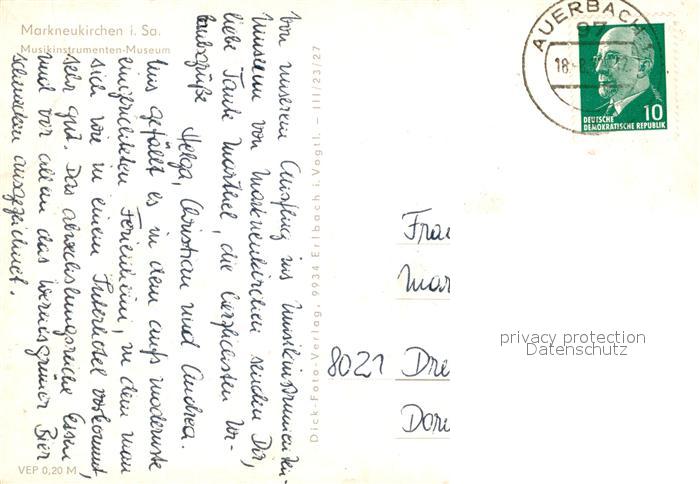 Markneukirchen i. Sa.
Musikinstrumenten-Museum
Von unserem Ausflug ins Musikinstrumenten-
museum von Markneukirchen senden Dir,
liebe Tante Marthel, die herzlichsten Ur-
laubsgrüße Helga, Christian und Andrea.
Uns gefällt es in dem aufs modernste
eingerichteten Ferienheim, in dem man
sich wie in einem Interhotel vorkommt,
sehr gut. Das abwechslungsreiche Essen
und vor allem das Wernesgrüner Bier
schmecken ausgezeichnet.
VEP 0,20 M
Dick-Foto-Verlag, 9934 Erlbach i. Vogtl. – III/23/27
AUERBACH
97
18.-8.
DEUTSCHE
DEMOKRATISCHE REPUBLIK
10
Frau
Mar
8021 Dre
Doru
privacy protection
Datenschutz